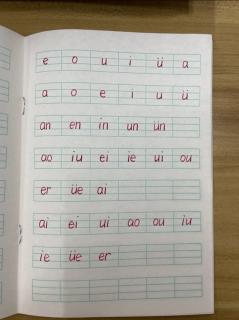 e o u i ü a
a o e i u ü
an en in un ün
ao iu ei ie ui ou
er üe ai
ai ei ui ao ou iu
ie üe er